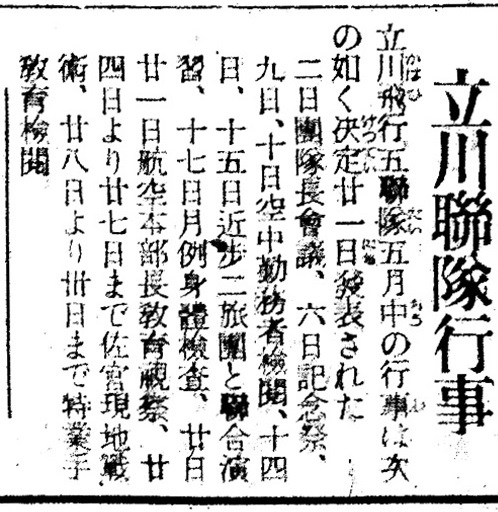 立川聯隊行事
立川飛行五聯隊五月中の行事は次
の如く決定廿一日發表された
二日團隊長會議、六日記念祭、
九日、十日空中勤務者檢閲、十四
日、十五日近歩二旅團と聯合演
習、十七日月例身體檢査、廿日
廿一日航空本部長敎育視察、廿
四日より廿七日まで佐官現地戰
術、廿八日より卅日まで特業子
敎育檢閲